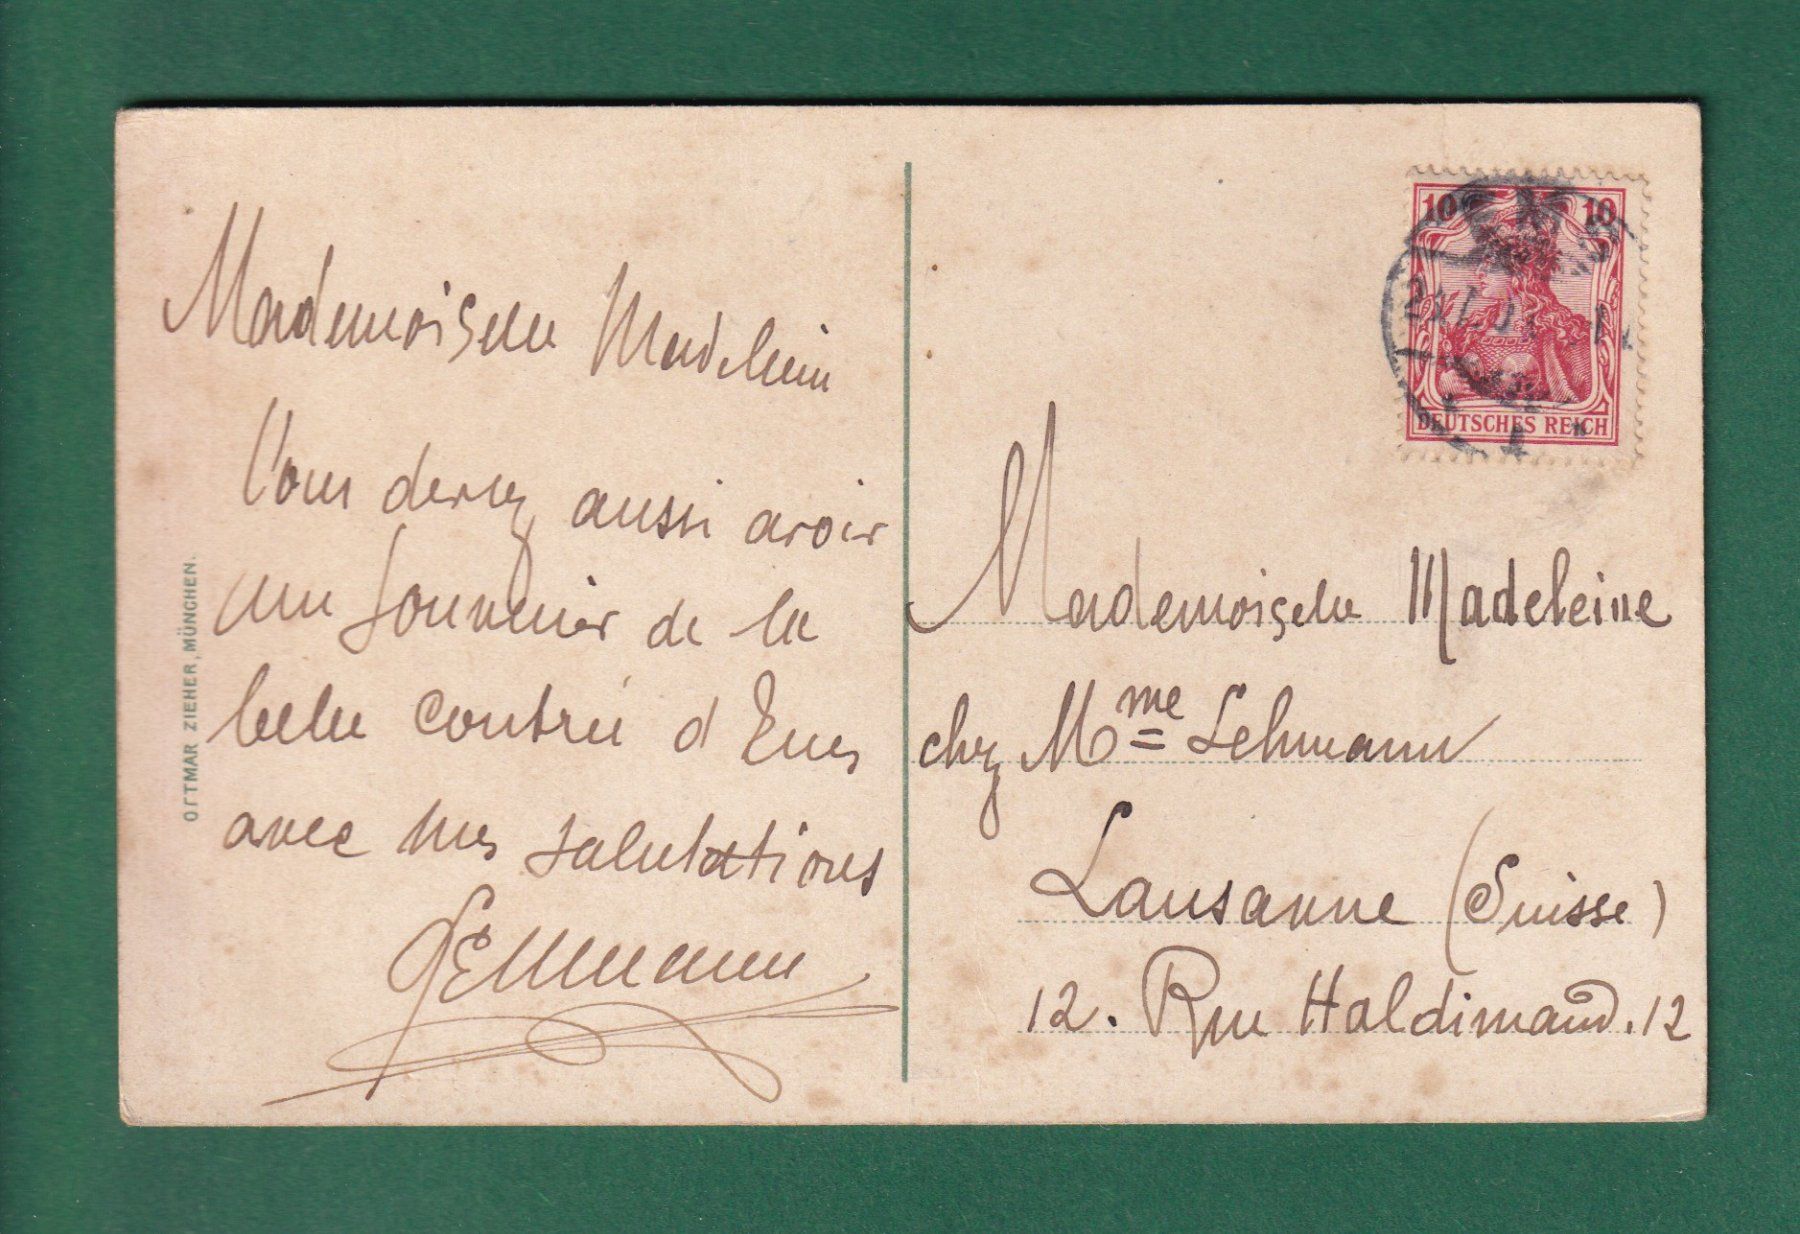 Mademoiselle Madelein
Vous devez aussi avoir
une souvenir de la
belle contrée d'Ems
avec mes salutations
OTTMAR ZIEHER, MÜNCHEN.
10 10
DEUTSCHES REICH
Mademoiselle Madeleine
chez Mme Lehmann
Lausanne (Suisse)
12. Rue Haldimand. 12